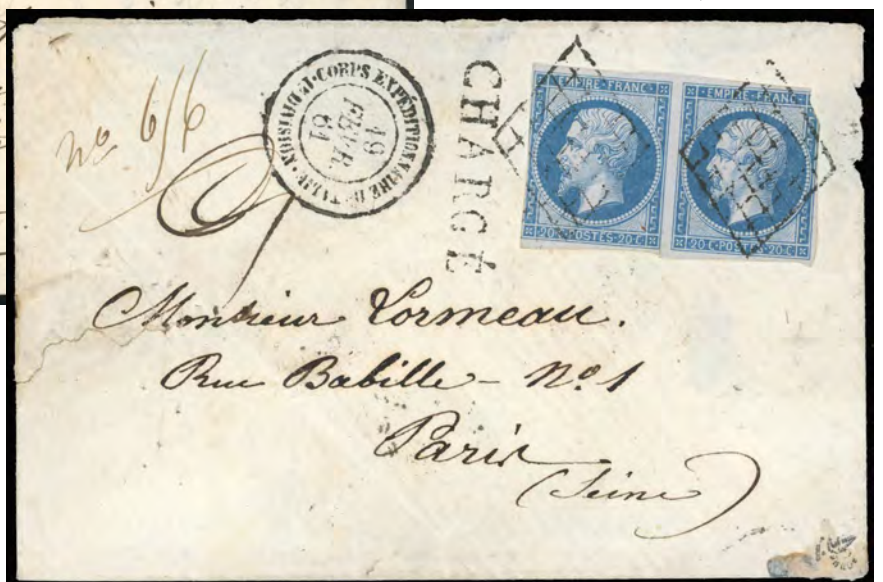 CORPS EXPÉDITIONNAIRE D'ITALIE
19
FEVR.
61
CHARGÉ
EMPIRE FRANC
20·C·POSTES·20·C
EMPIRE·FRANC
20·C·POSTES·20·C
Monsieur Lormeau.
Rue Babille - No. 1
Paris
(Seine)